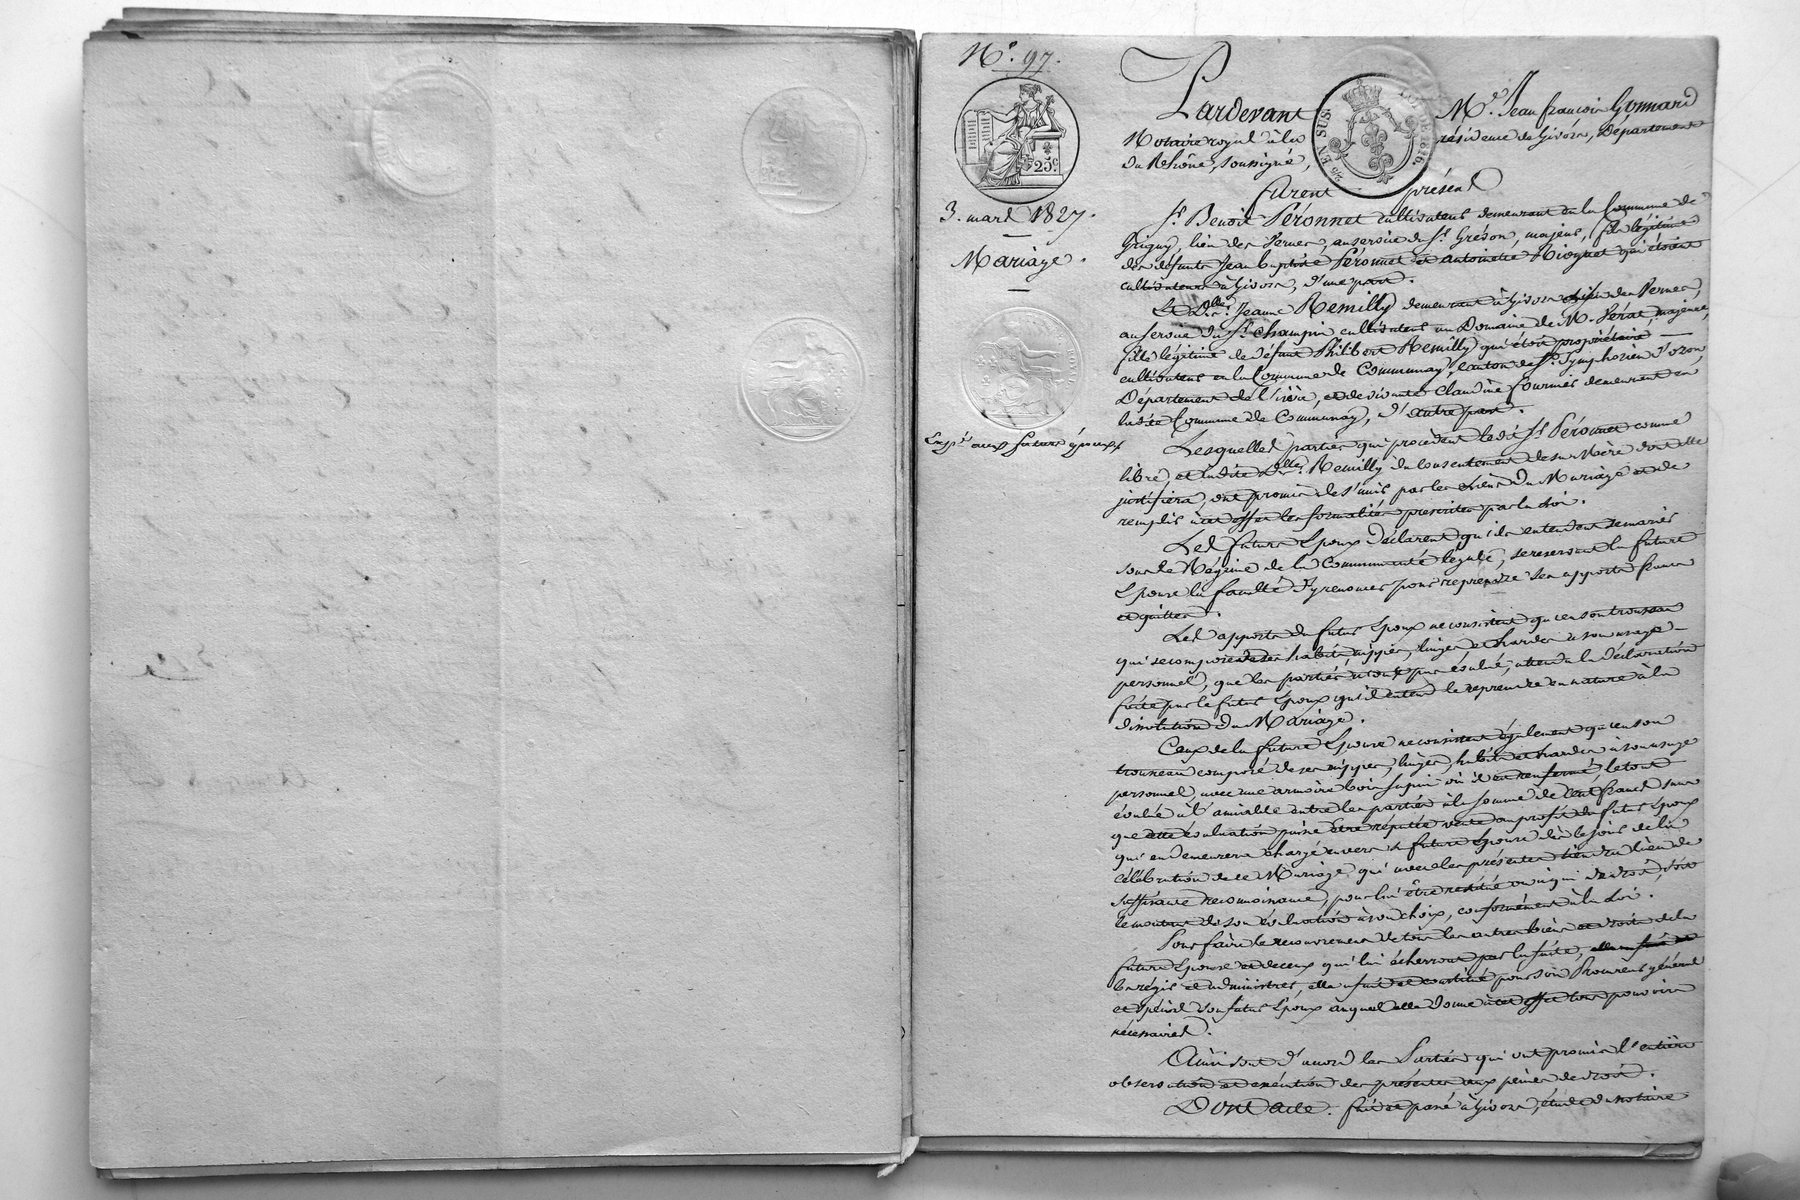 N.° 97.
25.c
3. mars 1827.
Mariage.
Exp.é aux futurs époux
EN SUS.
LOI DE 1816.
Pardevant M.e Jean françois Gonnard
Notaire royal à la résidence de Givors, Département
du Rhône, soussigné,
furent présent
S.r Benoit Péronnet cultivateur demeurant en la Commune de
Grigny, lieu des Vernes, au service du S.r Gréson, majeur, fils légitime
des défunts Jean baptiste Péronnet et antoinette qui étoient
cultivateurs à Givors, d'une part.
Et D.lle Jeanne Remilly demeurant à Givors lieu des Vernes,
au service du S.r Champin cultivateur au Domaine de M. Pérat, majeure,
fille légitime de défunt Philibert Remilly qui étoit propriétaire
cultivateur en la Commune de Communay, canton de S.t Symphorien d'ozon,
Département de l'isère, et de vivante Claudine fournier demeurant en
ladite Commune de Communay, d'autre part.
Lesquelles parties qui procèdent ledit S.r Péronnet comme
libre, et ladite D.lle Remilly du consentement de sa Mère dont elle
justifiera, ont promis de s'unir par les liens du Mariage et de
remplir à cet effet les formalités prescrites par la Loi.
Les futurs Epoux déclarent qu'ils entendent se marier
sous le Régime de la Communauté légale, se réservant la future
Epouse la faculté d'y renoncer pour reprendre ses apports francs
et quittes.
Les apports du futur Epoux ne consistent qu'en son trousseau
qui se compose de ses habits, nippes, linges, et hardes à son usage
personnel, que les parties n'ont pas évalué, attendu la déclaration
faite par le futur Epoux qu'il entend le reprendre en nature à la
dissolution du Mariage.
Ceux de la future Epouse ne consistent également qu'en son
trousseau composé de ses nippes, linges, habits et hardes à son usage
personnel, avec une armoire bois sapin où il est renfermé, le tout
évalué à l'amiable entre les parties à la somme de Cent francs sans
que cette évaluation puisse être réputée vente au profit du futur Epoux
qui en demeurera chargé envers la future Epouse dès le jour de la
célébration de ce Mariage, qui avec les présentes tiendra lieu de
suffisante reconnoissance, pour lui être restitué ou à qui de droit, soit
le montant de son évaluation à son choix, conformément à la Loi.
Pour faire le recouvrement de tous les autres biens et droits de la
future Epouse et de ceux qui lui écherront par la suite,
les régir et administrer, elle a fait et constitué pour son Procureur général
et spécial son futur Epoux auquel elle donne à cet effet tous pouvoirs
nécessaires.
Ainsi sont d'accord les Parties qui ont promis l'entière
observation et exécution des présentes aux peines de droit.
Dont acte. fait et passé à Givors, étude du notaire